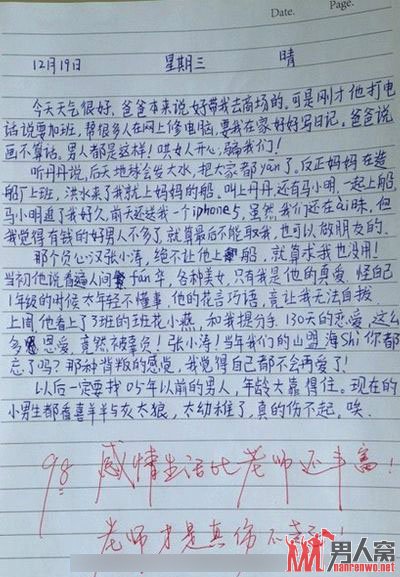 Date. Page.
12月19日 星期三 晴
今天天气很好,爸爸本来说好带我去商场的。可是刚才他打电
话说要加班,帮很多人在网上修电脑,要我在家好好写日记。爸爸说
画不算话。男人都是这样!哄女人开心,骗我们!
听丹丹说,后天地球会发大水,把大家都yān了。反正妈妈在造
船厂上班,洪水来了我就上妈妈的船。叫上丹丹还有马小明,一起上船。
马小明追了我好久,前天还送我一个iphone5,虽然我们还在ài昧,但
我觉得有钱的好男人不多了,就算最后不能取我,也可以做朋友的。
那个负心汉张小涛,绝不让他上船,就算求我也没用!
当初他说看遍人间fán华,各种美女,只有我是他的真爱,怪自己
1年级的时候太年轻不懂事,他的花言巧语,竟让我无法自拔
上周他看上了3班的班花小燕,和我提分手。130天的恋爱,这么
多恩爱,竟然被辜负!张小涛!当年我们的山盟海Shì你都
忘了吗?那种背叛的感觉,我觉得自己都不会再爱了!
以后一定要找05年以前的男人,年龄大靠得住。现在的
小男生都看喜羊羊与灰太狼,太幼稚了,真的伤不起,唉。
98 感情生活比老师还丰富!
老师才是真伤不起!
男人窝
nanrenwo.net